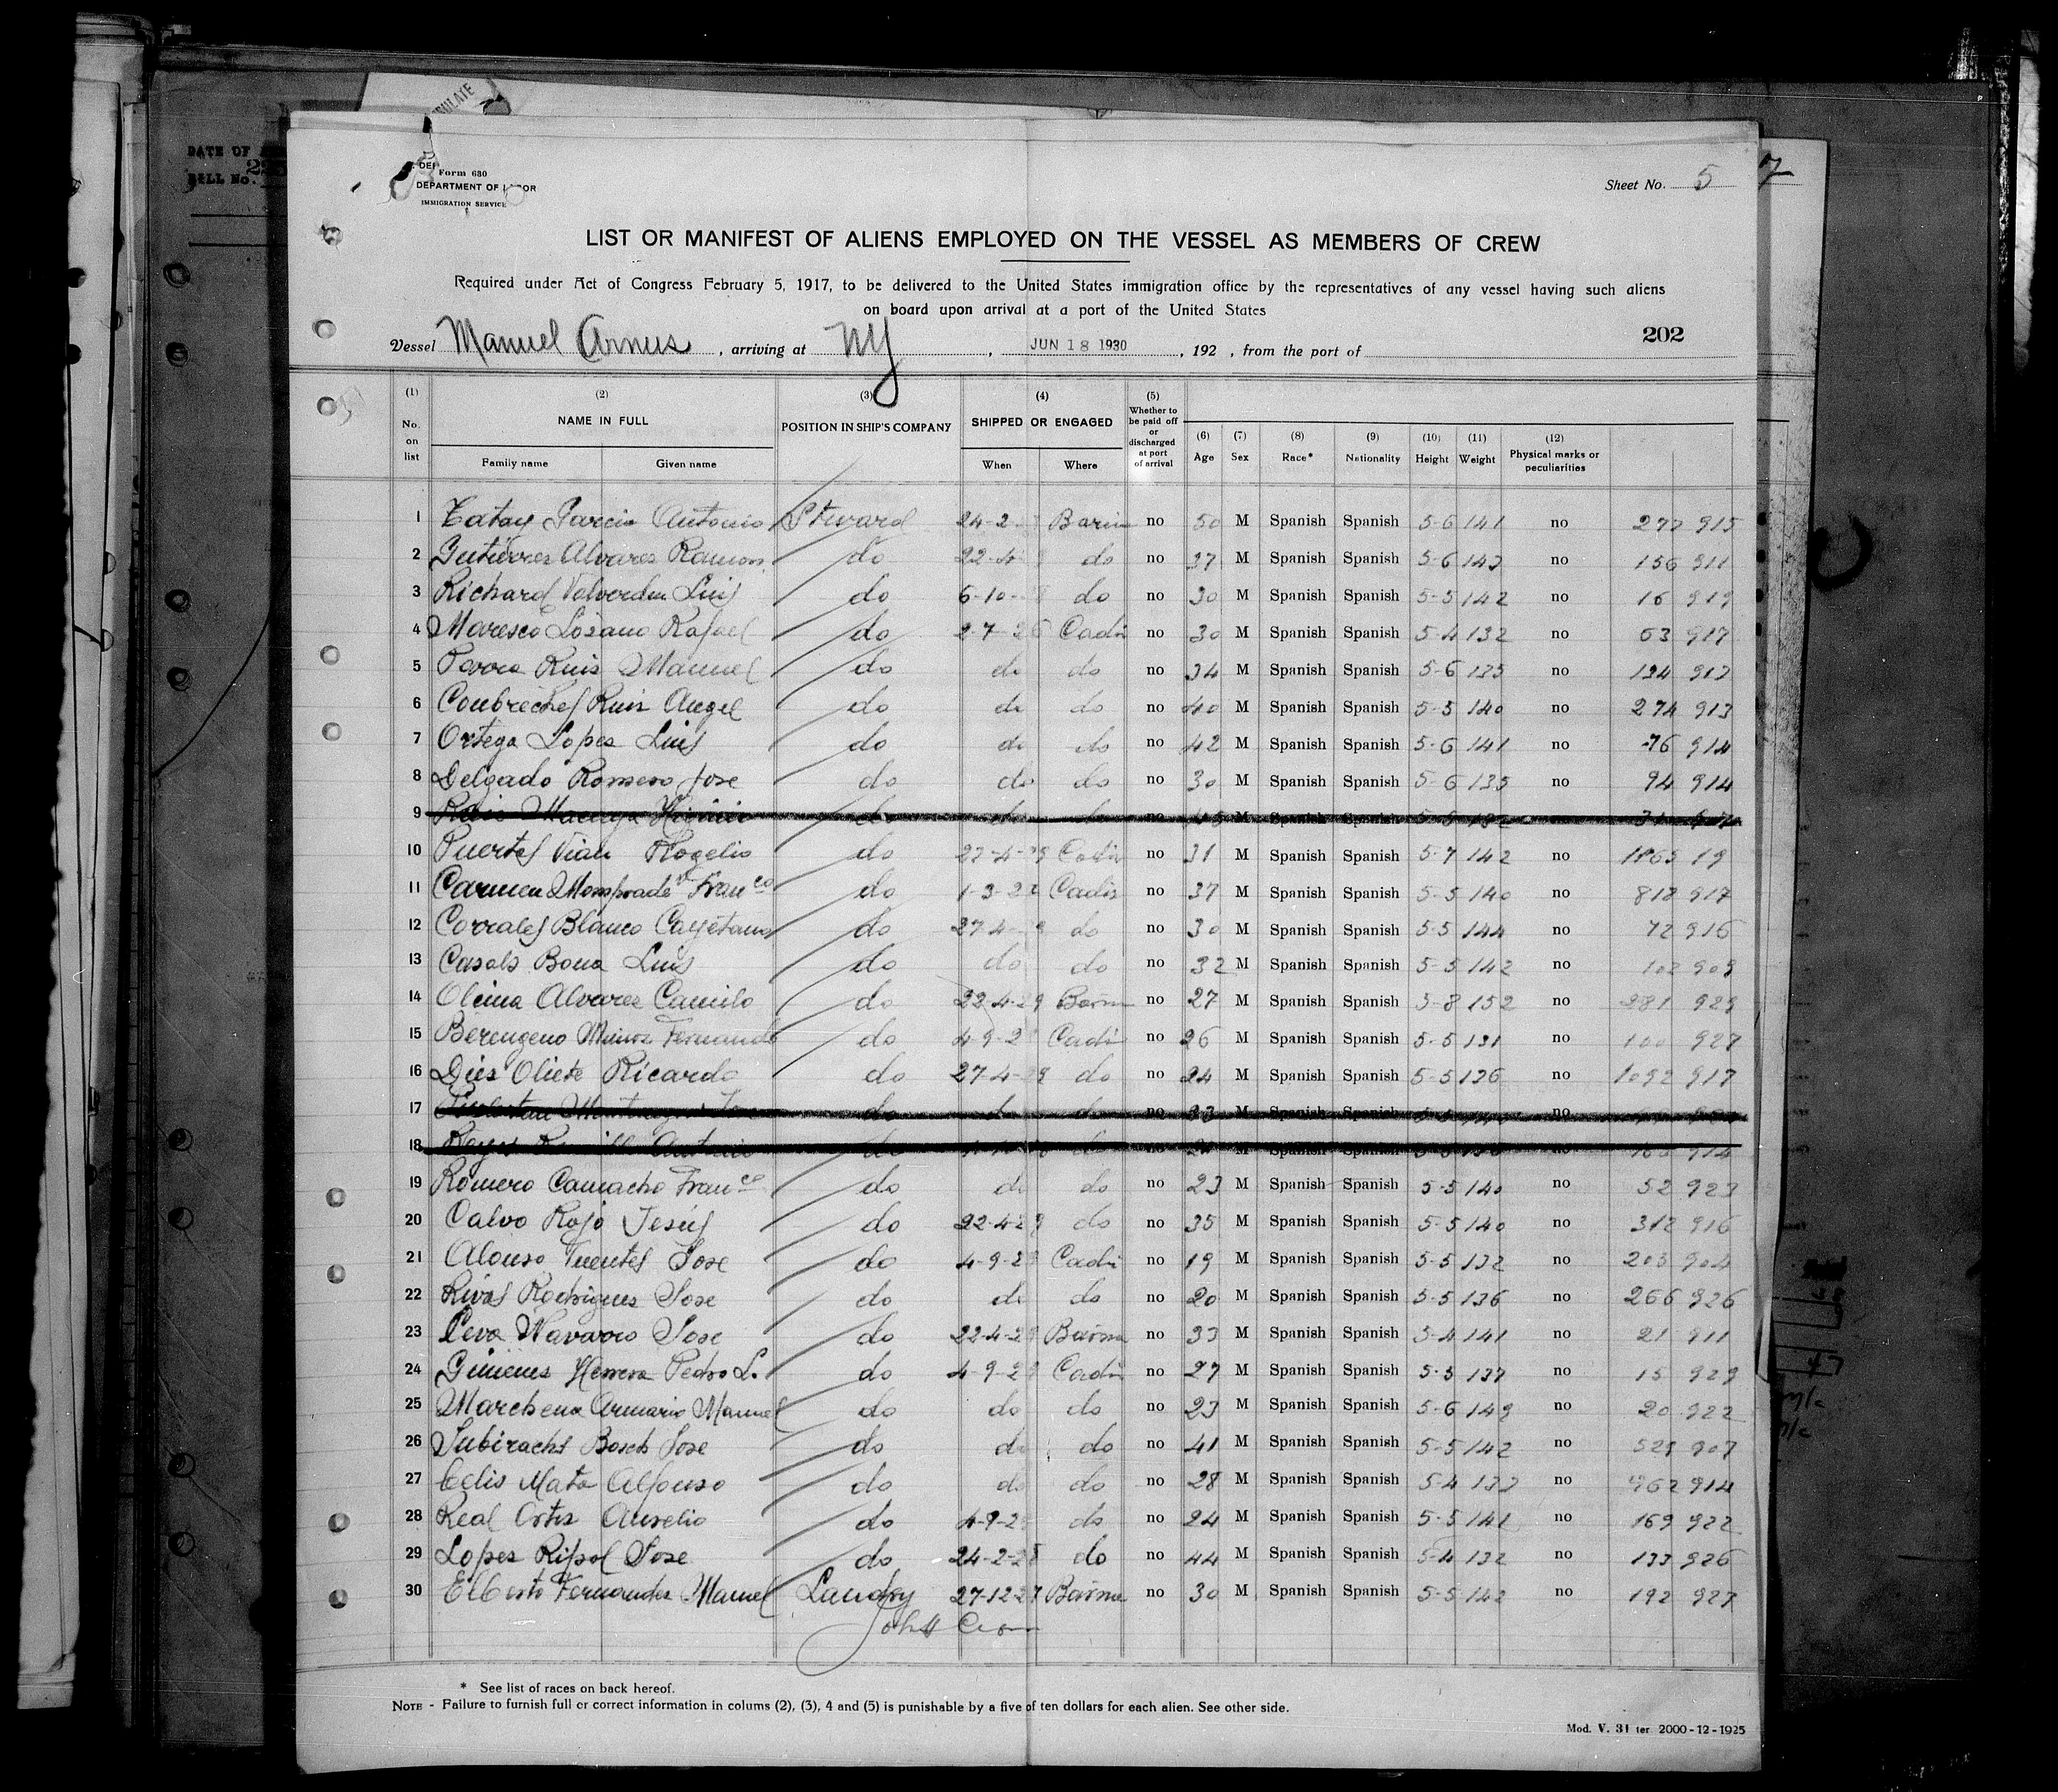 DATE OF
BILL No.
Form 630
DEPARTMENT OF LABOR
IMMIGRATION SERVICE
Sheet No. 5
LIST OR MANIFEST OF ALIENS EMPLOYED ON THE VESSEL AS MEMBERS OF CREW
Required under Act of Congress February 5, 1917, to be delivered to the United States immigration office by the representatives of any vessel having such aliens
on board upon arrival at a port of the United States
202
Vessel Manuel Arnus, arriving at NY, JUN 18 1930, 192 , from the port of
(1) No. on list (2) NAME IN FULL Family name Given name (3) POSITION IN SHIP'S COMPANY (4) SHIPPED OR ENGAGED When Where (5) Whether to be paid off or discharged at port of arrival (6) Age (7) Sex (8) Race* (9) Nationality (10) Height (11) Weight (12) Physical marks or peculiarities
1 Garcia Antonio Steward 24-2 no 50 M Spanish Spanish 5-6 141 no 277 915
2 Alvares Ramon do 22-4 do no 37 M Spanish Spanish 5-6 143 no 156 911
3 Richard Valverde Luis do 6-10 do no 30 M Spanish Spanish 5-5 142 no 16 919
4 Maresco Lozano Rafael do 2-7-26 Cadiz no 30 M Spanish Spanish 5-4 132 no 63 917
5 Ruis Manuel do do do no 34 M Spanish Spanish 5-6 135 no 194 913
6 Ruis Angel do do do no 40 M Spanish Spanish 5-5 140 no 274 913
7 Ortega Lopes Luis do do do no 42 M Spanish Spanish 5-6 141 no 76 914
8 Delgado Romero Jose do do do no 30 M Spanish Spanish 5-6 135 no 94 914
9 do do do no 45 M Spanish Spanish
10 Puertes Vian Rogelio do 27-4-29 Cadiz no 31 M Spanish Spanish 5-7 142 no 19
11 Carmen Franco do 1-3-2 Cadiz no 37 M Spanish Spanish 5-5 140 no 812 917
12 Corrales Blanco Cayetano do 27-4-29 do no 30 M Spanish Spanish 5-5 144 no 72 916
13 Casals Bona Luis do do do no 32 M Spanish Spanish 5-5 142 no 102 909
14 Olcina Alvares Camilo do 22-4-29 no 27 M Spanish Spanish 5-8 152 no 281 929
15 Berengeno Munoz Fernando do 4-9-2 Cadiz no 26 M Spanish Spanish 5-5 131 no 100 927
16 Dies Oliete Ricardo do 27-4-29 do no 24 M Spanish Spanish 5-5 136 no 1092 917
17 do do do no 23 M Spanish Spanish no
18 do do no M Spanish Spanish no 914
19 Romero Camacho Franco do do do no 23 M Spanish Spanish 5-5 140 no 52 923
20 Calvo Rojo Jesús do 22-4-29 do no 35 M Spanish Spanish 5-5 140 no 312 916
21 Alonso Fuentes Jose do 4-9-29 Cadiz no 19 M Spanish Spanish 5-5 132 no 203 904
22 Rivas Rodrigues Jose do do do no 20 M Spanish Spanish 5-5 136 no 266 926
23 Navarro Jose do 22-4-29 Barna no 33 M Spanish Spanish 5-4 141 no 21 911
24 Gimenes Herrera Pedro L. do 4-9-29 Cadiz no 27 M Spanish Spanish 5-5 137 no 15 929
25 Marchena Armario Manuel do do do no 23 M Spanish Spanish 5-6 149 no 20 922
26 Subirachs Bosch Jose do do do no 41 M Spanish Spanish 5-5 142 no 529 907
27 Celis Mata Alfonso do do do no 28 M Spanish Spanish 5-4 133 no 962 914
28 Real Ortiz Aurelio do 4-9-29 do no 24 M Spanish Spanish 5-5 141 no 169 922
29 Lopes Ripol Jose do 24-2-28 do no 44 M Spanish Spanish 5-4 132 no 133 926
30 Elberto Fernandes Manuel Landry 27-12-27 Barna no 30 M Spanish Spanish 5-5 142 no 192 927
* See list of races on back hereof.
NOTE - Failure to furnish full or correct information in colums (2), (3), 4 and (5) is punishable by a five of ten dollars for each alien. See other side.
Mod. V. 31 ter 2000-12-1925